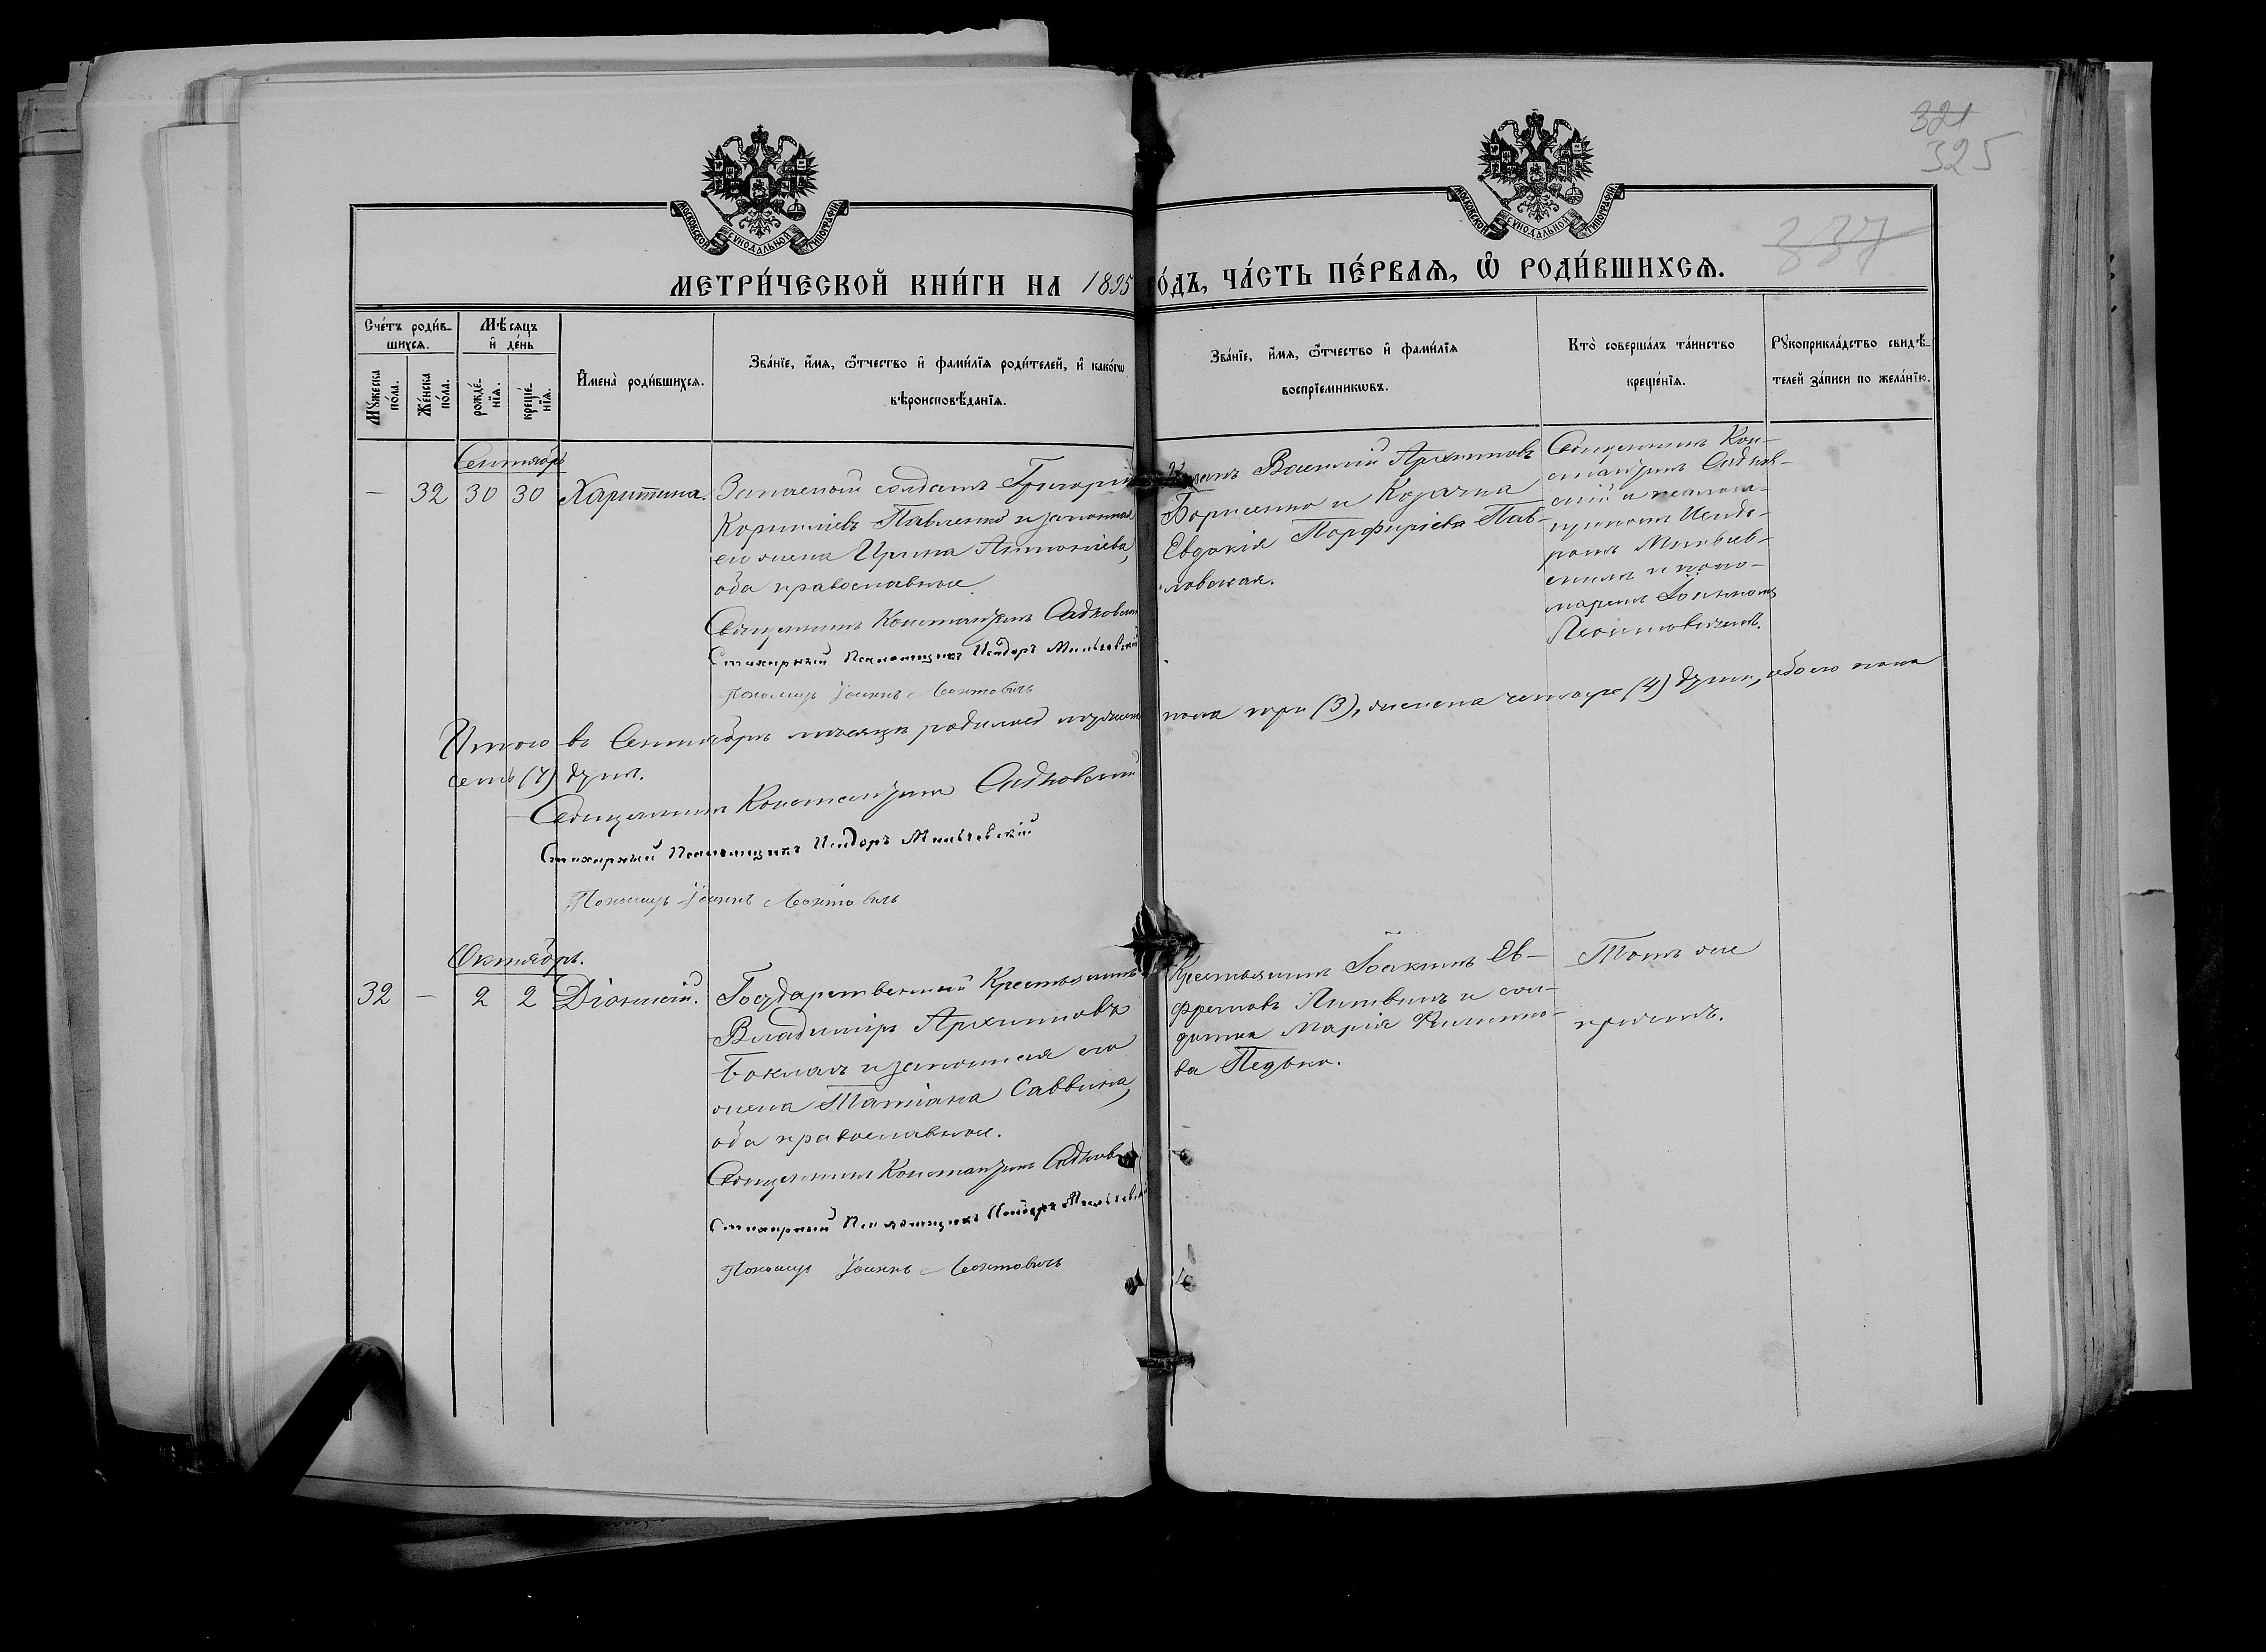 321
325
337
МОСКОВСКОЙ СѴНОДАЛЬНОЙ ТИПОГРАФІИ
МОСКОВСКОЙ СѴНОДАЛЬНОЙ ТИПОГРАФІИ
МЕТРИ́ЧЕСКОЙ КНИ́ГИ НА 1895 ГО́ДЪ, ЧА́СТЬ ПЕ́РВАЯ, Ѽ РОДИ́ВШИХСЯ.
Сче́тъ роди́вшихся.
Мꙋ́жеска по́ла.
Же́нска по́ла.
Мѣ́сяцъ и҆ де́нь
рожде́нїя.
креще́нїя.
И҆мена̀ роди́вшихся.
Зва́нїе, и҆́мя, ѻ҆́тчество и҆ фами́лїя роди́телей, и҆ како́гѡ
вѣроисповѣ́данїя.
Зва́нїе, и҆́мя, ѻ҆́тчество и҆ фами́лїя
воспрїе́мникѡвъ.
Кто̀ соверша́лъ та́инство
креще́нїя.
Рꙋкоприкла́дство свидѣ́телей за́писи по жела́нїю.
Сентябрь
— 32 30 30 Харитина.
Запасный солдатъ Григорій
Корниліевъ Павленко и законная
его жена Ирина Антоніева,
оба православные.
Священникъ Константинъ Садковскій
Стихарный Псаломщикъ Исидоръ Миньевскій
Пономарь Іоаннъ Леонтовичъ
Козакъ Василій Архиповъ
Борисенко и Козачка
Евдокія Порфиріева Пав-
ловская.
Священникъ Кон-
стантинъ Садков-
скій и псалом-
щикомъ Исидо-
ромъ Миньев-
скимъ и поно-
маремъ Іоанномъ
Леонтовичемъ.
Итого въ Сентябрѣ мѣсяцѣ родилось мужеска пола три (3), женска четыре (4) души, обоего пола
семь (7) душъ.
Священникъ Константинъ Садковскій
Стихарный Псаломщикъ Исидоръ Миньевскій
Пономарь Іоаннъ Леонтовичъ
Октябрь.
32 — 2 2 Діонисій.
Государственный Крестьянинъ
Владиміръ Архиповъ
Бокланъ и законная его
жена Татіана Саввина,
оба православные.
Священникъ Константинъ Садков
Стихарный Псаломщикъ Исидоръ Миньевскій
Пономарь Іоаннъ Леонтовичъ
Крестьянинъ Іоакимъ Ев-
фремовъ Литвинъ и сол-
датка Марія Филиппо-
ва Педько.
Тотъ же
причтъ.